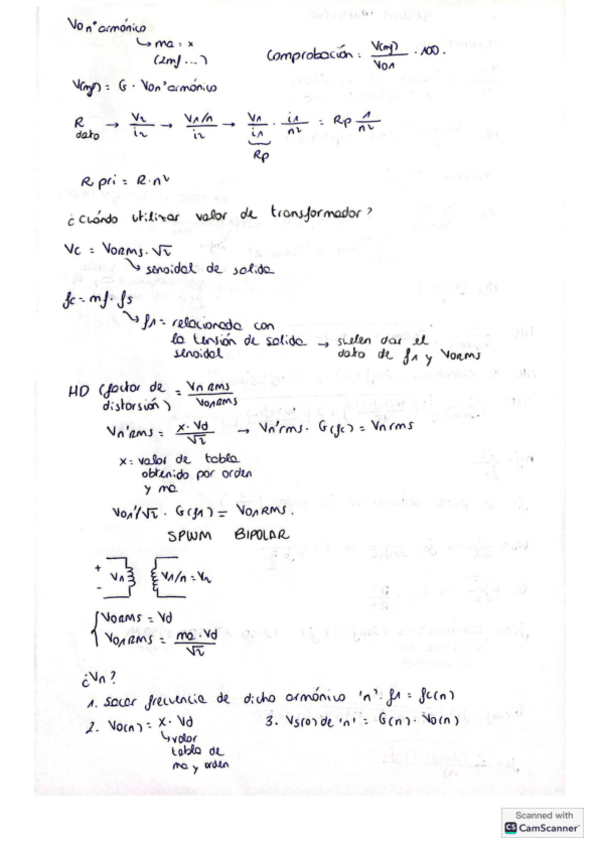 Vo n'armónico
↳ ma = x
(2mf ...)
Comprobación: V(mf)/Vo1 · 100.
V(mf) = G · Von'armónico
R → V2/i2 → V1/n / i2 → V1/i1 · i1/n2 = Rp 1/n²
dato
Rp
R pri = R · n²
¿Cuándo utilizar valor de transformador?
Vc = VoRMS · √2
↳ senoidal de salida
fc = mf · fs
↳ f1 = relacionada con
la tensión de salida → suelen dar el
senoidal dato de f1 y VoRMS
HD (factor de = Vn RMS / Vo1RMS
distorsión)
Vn'rms = x · Vd / √2 → Vn'rms · G(fc) = Vnrms
x = valor de tabla
obtenido por orden
y ma
Vo1'/√2 · G(f1) = Vo1RMS.
SPWM BIPOLAR
+
V1 V1/n = V2
-
VoRMS = Vd
Vo1RMS = ma · Vd / √2
¿Vn?
1. Sacar frecuencia de dicho armónico 'n' · f1 = fc(n)
2. Vo(n) = x · Vd 3. Vs(o) de 'n' = G(n) · Vo(n)
↳ valor
tabla de
ma y orden
Scanned with
CS CamScanner